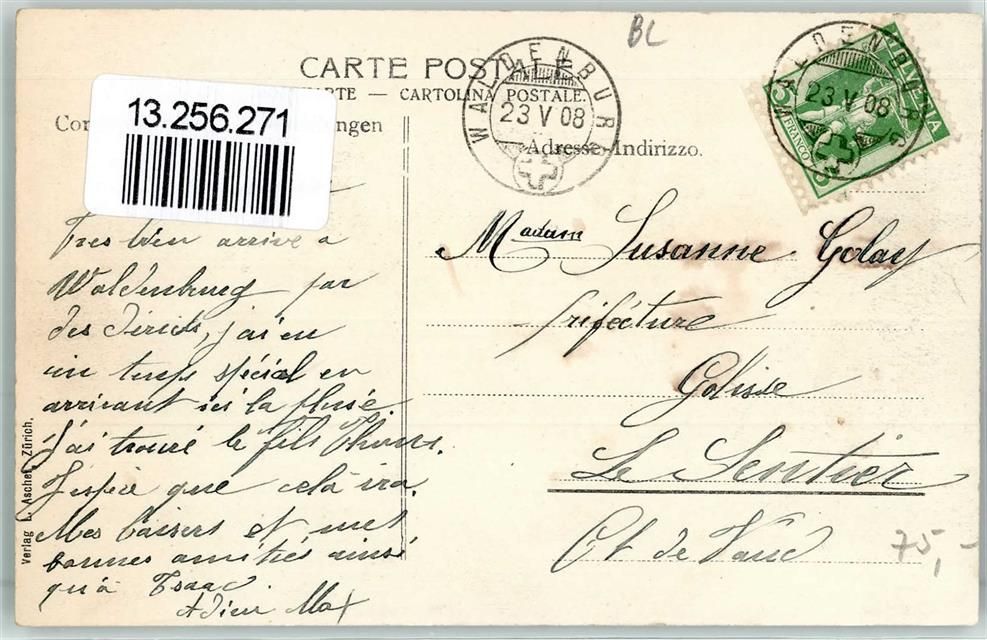 BL
CARTE POSTALE
CARTOLINA POSTALE.
13.256.271
Adresse-Indirizzo.
WALDENBURG
23 V 08
WALDENBURG
23 V 08
HELVETIA
FRANCO
Tres bien arrivé a
Waldenburg par
des
j'ai eu
un temps spécial en
arrivant ici la pluie.
J'ai trouvé le fils Thoms.
J'espère que celà ira.
Mes baisers et mes
bonnes amitiés ainsi
qu'à Isaac.
Adieu Max
Madam Susanne Golay
préfecture
Golisse
Le Sentier
Ct. de Vaud
75,-
Verlag L. Ascher, Zürich.